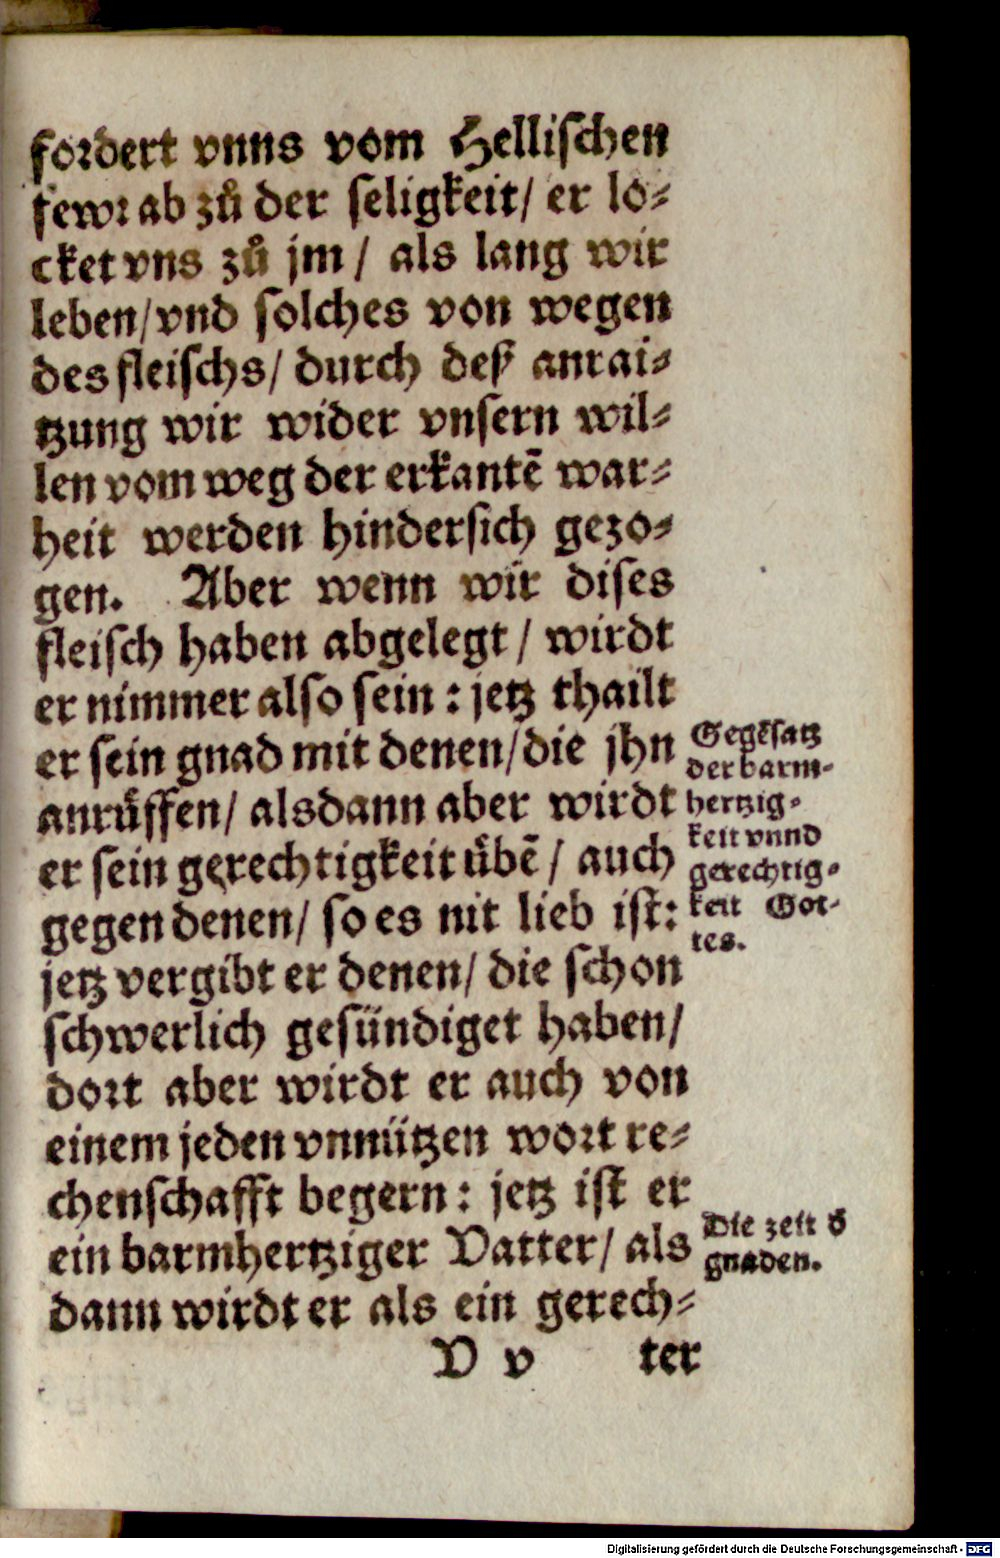 fordert vnns vom Hellischen
fewr ab zů der seligkeit/ er lo⸗
cket vns zů jm / als lang wir
leben/ vnd solches von wegen
des fleischs/ durch deß anrai⸗
tzung wir wider vnsern wil⸗
len vom weg der erkantē war⸗
heit werden hindersich gezo⸗
gen. Aber wenn wir dises
fleisch haben abgelegt / wirdt
er nimmer also sein : jetz thailt
er sein gnad mit denen/ die jhn
anrůffen/ alsdann aber wirdt
er sein gerechtigkeit ůbē / auch
gegen denen/ so es nit lieb ist:
jetz vergibt er denen/ die schon
schwerlich gesündiget haben/
dort aber wirdt er auch von
einem jeden vnnützen wort re⸗
chenschafft begern : jetz ist er
ein barmhertziger Vatter/ als
dann wirdt er als ein gerech⸗
V v ter
Gegēsatz
der barm⸗
hertzig⸗
keit vnnd
gerechtig⸗
keit Got⸗
tes.
Die zeit d̓
gnaden.
Digitalisierung gefördert durch die Deutsche Forschungsgemeinschaft - DFG